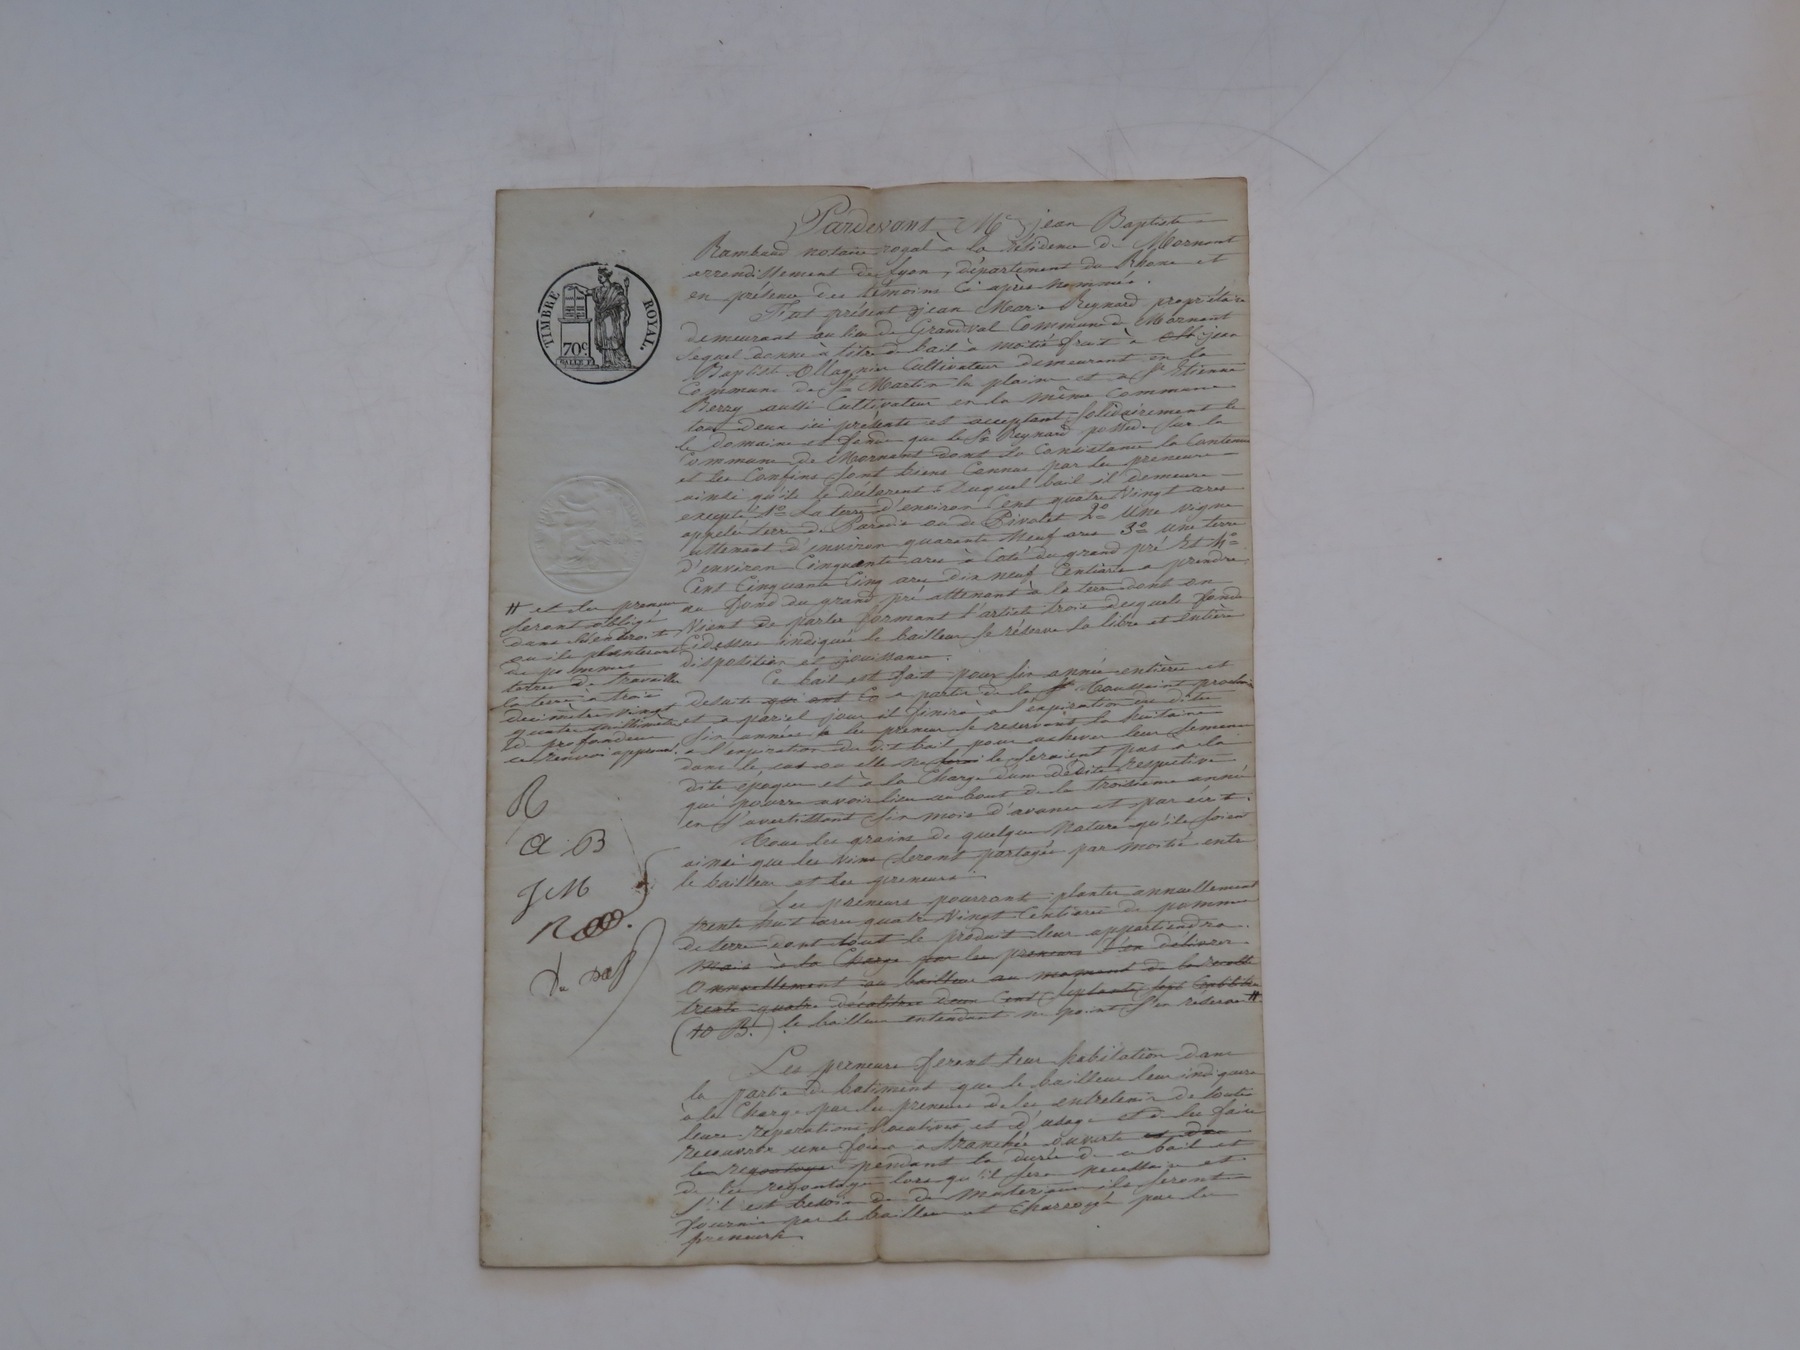 TIMBRE ROYAL.
70c
Pardevant Me jean Baptiste
Rambaud notaire royal à la résidence de Mornant
arrondissement de Lyon, département du Rhone et
en présence des témoins ci après nommés.
Fut présent jean Marie Reynard propriétaire
demeurant au lieu de Grandval Commune de Mornant
lequel donne à titre de bail à moitié fruit à jean
Baptiste Ollagnier Cultivateur demeurant en la
Commune de St Martin la plaine et à St Etienne
Berry aussi Cultivateur en la même Commune
tous deux ici présents et acceptant solidairement le
le Domaine et fonds que le Sr Reynard possède sur la
Commune de Mornant dont la Consistance la Contenue
et les Confins sont biens Connus par les preneurs
ainsi qu'ils le déclarent duquel bail il demeure
excepté 1o La terre d'environ Cent quatre Vingt ares
appelé terre de Paradis ou de Pivolet 2o Une vigne
attenant d'environ quarante Neuf ares 3o Une terre
d'environ Cinquante ares à Coté du grand pré Et 4o
Cent Cinquante Cinq ares dix neuf Centiares a prendre
au fond du grand pré attenant à la terre dont on
Vient de parler formant l'article trois desquels fonds
Cidessus indiqués le bailleur se réserve la libre et entière
disposition et jouissance.
Ce bail est fait pour six années entières et
de suite qui ont Co a partir de la St Toussaint prochaine
et a pareil jour il finira à l'expiration des dites
six années les preneurs se reservant la huitaine
a l'expiration du dit bail pour achever leur semence
dans le cas ou elle ne le seraient pas a la
dite époque et à la Charge d'un dédite respective
qui pourra avoir lieu au bout de la troisième année
en s'avertissant six mois d'avance et par écrit.
Tous les grains de quelque Nature qu'ils soient
ainsi que les Vins seront partagés par moitié entre
le bailleur et les preneurs
Les preneurs pourront planter annuellement
trente huit ares quatre Vingt Centiares de pommes
de terre dont tout le produit leur appartiendra.
Mais à la Charge par les preneurs d'en délivrer
Annuellement au bailleur au moment de la recolte
trente quatre décalitres deux Cent Septante
(40 B.) le bailleur entendant ne point s'en reserver #
# et les preneurs
seront obligé
dans l'endroit
ou ils planteront
des pommes
terres de travailler
la terre à trois
decimètres vingt
quatre millimètres
de profondeur
ce renvoi approuvé.
R
A B
J M
R
Les preneurs feront leur habitation dans
la partie du batiment que le bailleur leur indiquera
à la Charge par les preneurs de les entretenir de toutes
leurs réparations locatives et d'usage et à les faire
recouvrir une fois a tranchée ouverte et de
les regoutoyer pendant la durée de ce bail et
de les regontoyer lors qu'il sera necessaire et
s'il est besoin de de Materiaux ils seront
fournis par le bailleur et Charroyé par les
preneurs.